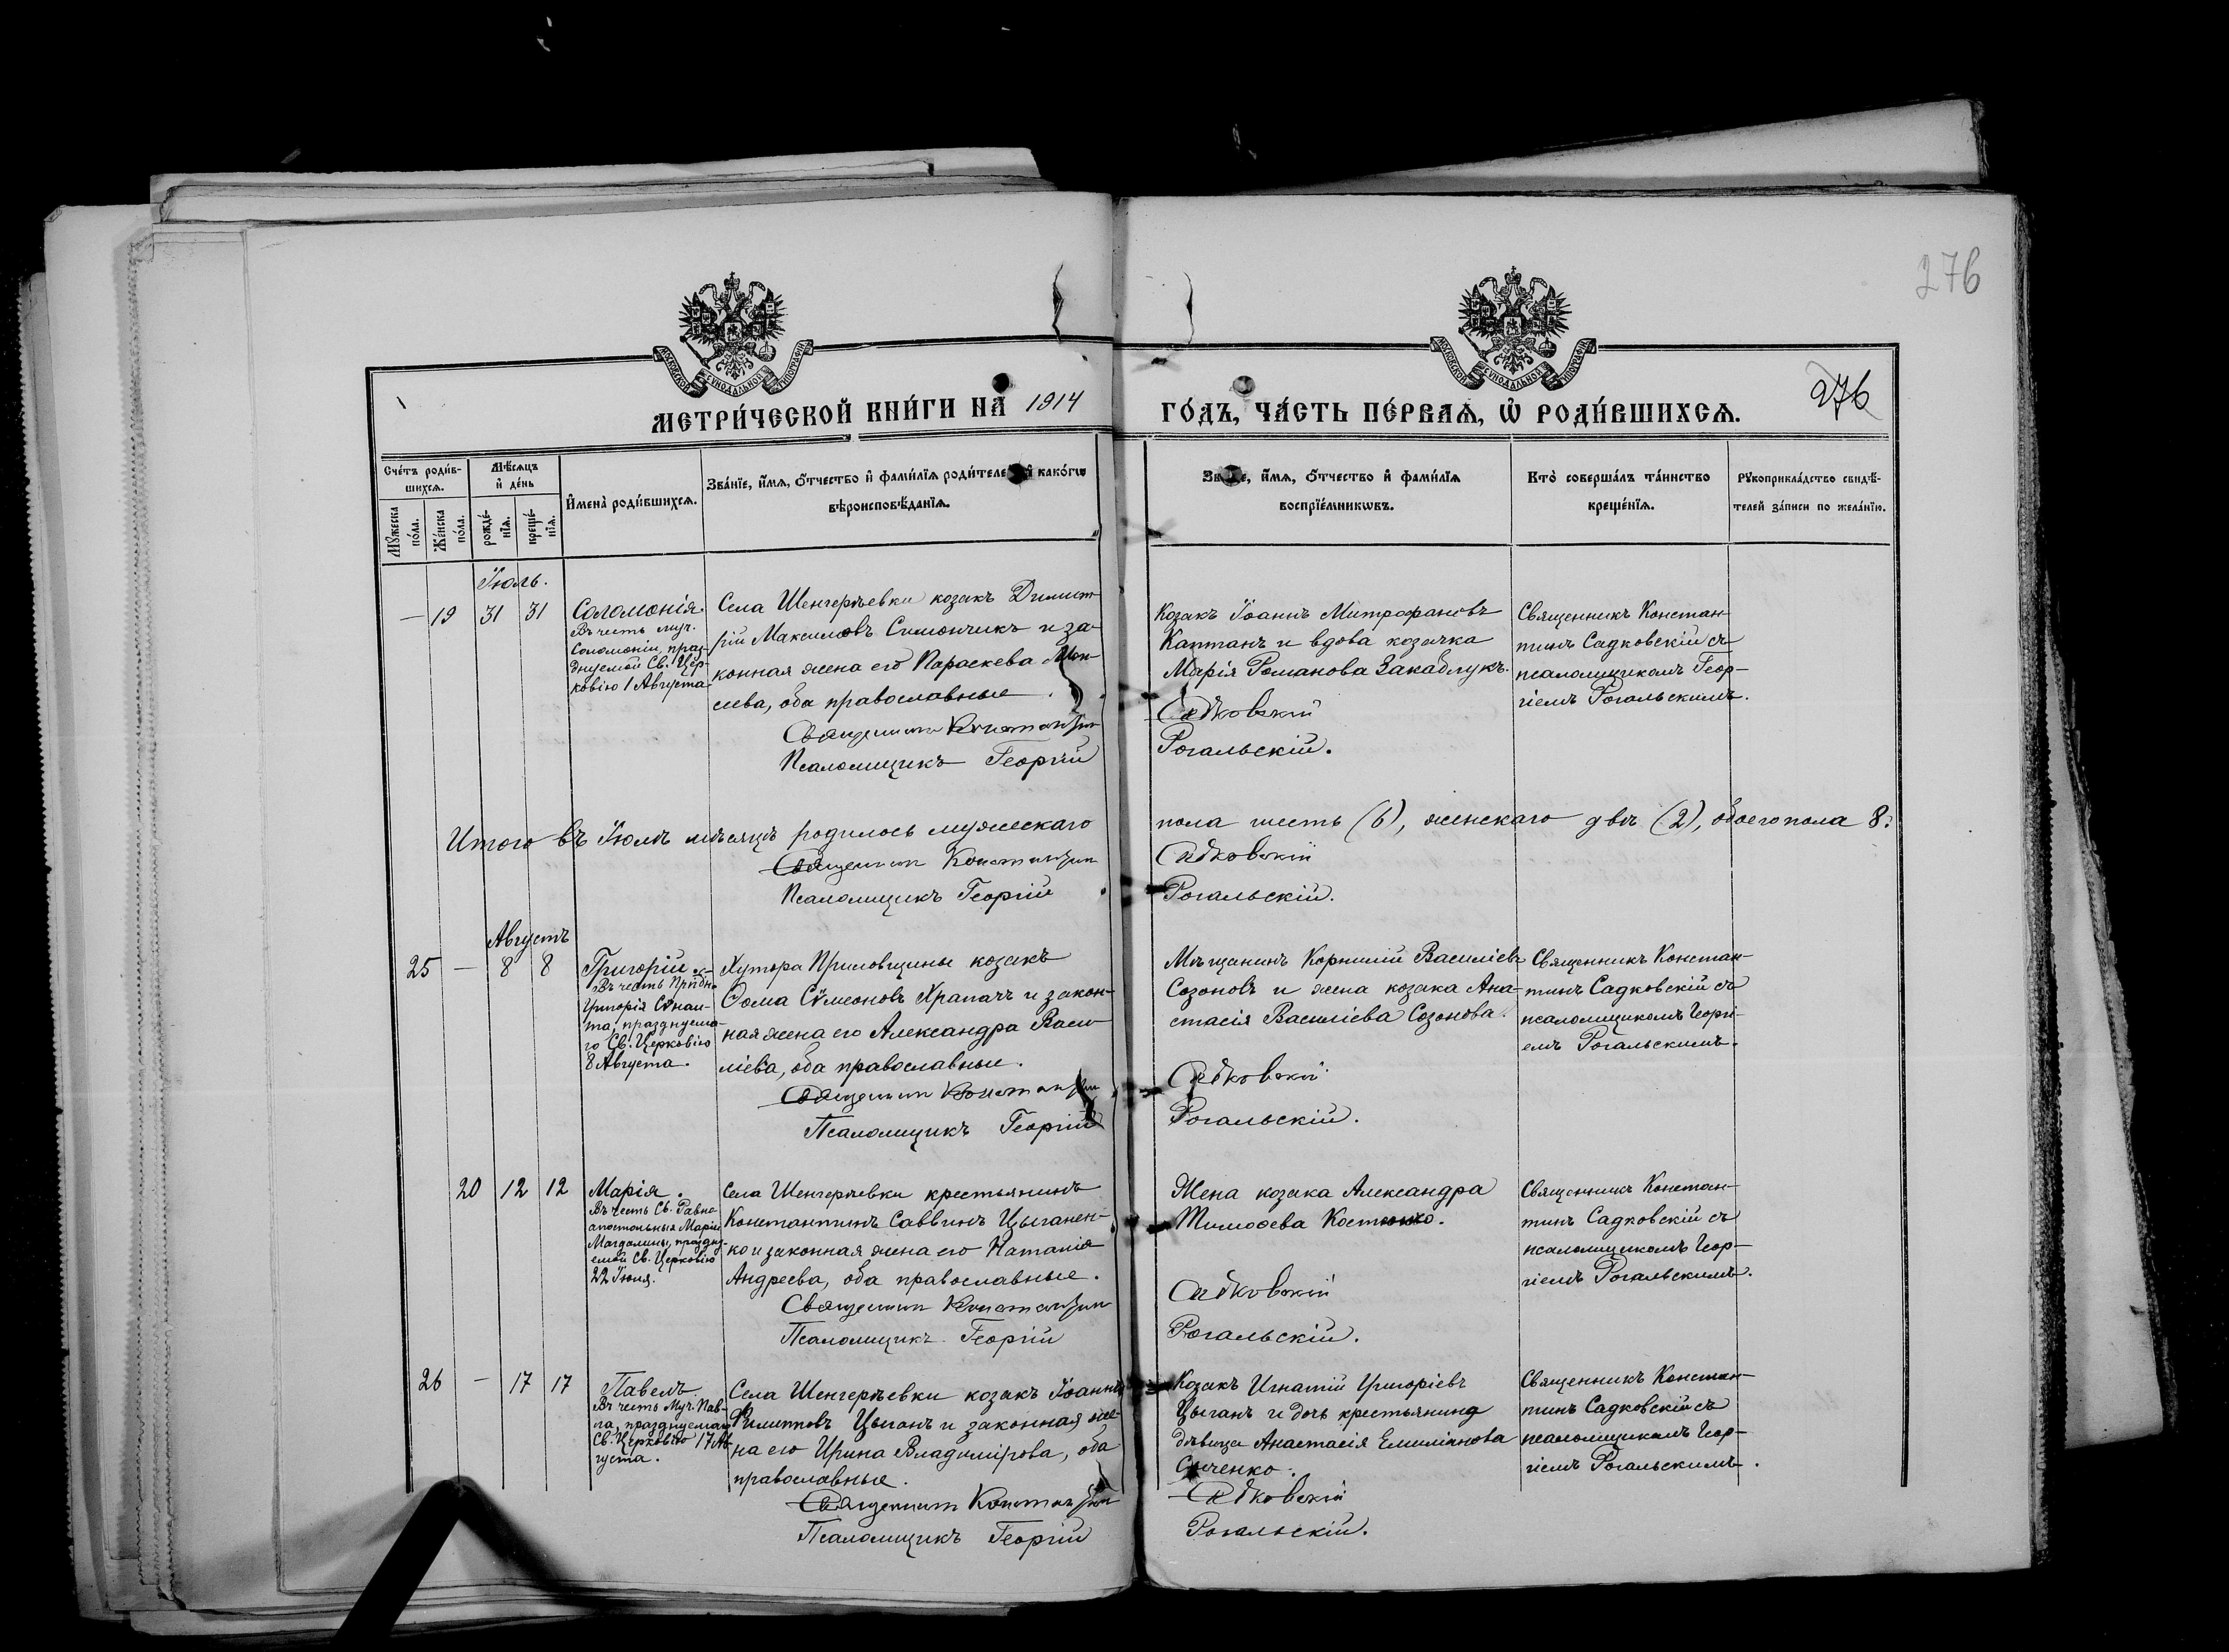 276
МОСКОВСКОЙ СѴНОДАЛЬНОЙ ТИПОГРАФІИ
МОСКОВСКОЙ СѴНОДАЛЬНОЙ ТИПОГРАФІИ
МЕТРИ́ЧЕСКОЙ КНИ́ГИ НА 1914
ГО́ДЪ, ЧА́СТЬ ПЕ́РВАѦ, Ѡ҆ РОДИ́ВШИХСѦ.
276
Сче́тъ роди́в-
шихсѧ.
Мѣ́сѧцъ
и҆ де́нь
Мꙋ́жеска
по́ла.
Же́нска
по́ла.
рожде́-
нїѧ.
креще́-
нїѧ.
И҆мена̀ роди́вшихсѧ.
Зва́нїе, и҆́мѧ, ѻ҆́тчество и҆ фами́лїѧ роди́телей и҆ како́гѡ
вѣроисповѣ́данїѧ.
и҆́мѧ, ѻ҆́тчество и҆ фами́лїѧ
воспрїе́мникѡвъ.
Кто̀ соверша́лъ та́инство
креще́нїѧ.
Рꙋкоприкла́дство свидѣ́-
телей за́писи по жела́нїю.
Іюль.
— 19 31 31
Соломонія.
Въ честь муч.
Соломоніи, праз-
днуемой Св. Цер-
ковію 1 Августа
Села Шенгерѣевки козакъ Димит-
рій Максимовъ Симончикъ и за-
конная жена его Параскева
сіева, оба православные.
Священникъ Константинъ
Псаломщикъ Георгій
Козакъ Іоаннъ Митрофановъ
Каптанъ и вдова козачка
Марія Романова Закаблукъ.
Садковскій
Рогальскій.
Священникъ Констан-
тинъ Садковскій съ
псаломщикомъ Геор-
гіемъ Рогальскимъ.
Итого въ Іюлѣ мѣсяцѣ родилось мужескаго
пола шесть (6), женскаго двѣ (2), обоего пола 8.
Священникъ Константинъ
Псаломщикъ Георгій
Садковскій
Рогальскій.
Августъ
25 — 8 8
Григорій
Въ честь Прпбн.
Григорія Синаи-
та, празднуема-
го Св. Церковію
8 Августа.
Хутора Примовщины козакъ
Ѳома Сѵмеоновъ Храпачъ и закон-
ная жена его Александра Васи-
ліева, оба православные.
Священникъ Константинъ
Псаломщикъ Георгій
Мѣщанинъ Корнилій Василіевъ
Созоновъ и жена козака Ана-
стасія Василіева Созонова.
Садковскій
Рогальскій.
Священникъ Констан-
тинъ Садковскій съ
псаломщикомъ Георгі-
емъ Рогальскимъ.
20 12 12
Марія.
Въ честь Св. Равно-
апостольныя Маріи
Магдалины, праздну-
емой Св. Церковію
22 Іюля.
Села Шенгерѣевки крестьянинъ
Константинъ Саввинъ Цыганен-
ко и законная жена его Наталія
Андреева, оба православные.
Священникъ Константинъ
Псаломщикъ Георгій
Жена козака Александра
Тимоѳеева Костенко.
Садковскій
Рогальскій.
Священникъ Констан-
тинъ Садковскій съ
псаломщикомъ Геор-
гіемъ Рогальскимъ.
26 — 17 17
Павелъ.
Въ честь Муч. Пав-
ла, празднуемаго
Св. Церковію 17 Ав-
густа.
Села Шенгерѣевки козакъ Іоаннъ
Филипповъ Цыганъ и законная же-
на его Ирина Владимірова, оба
православные.
Священникъ Константинъ
Псаломщикъ Георгій
Козакъ Игнатій Григоріевъ
Цыганъ и дочь крестьянина
дѣвица Анастасія Емиліанова
Садковскій
Рогальскій.
Священникъ Констан-
тинъ Садковскій съ
псаломщикомъ Геор-
гіемъ Рогальскимъ.